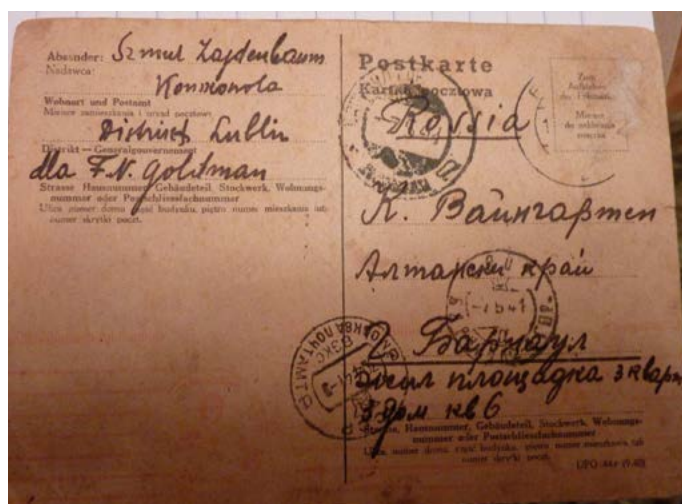 Absender: Szmul Zajdenbaum
Nadawca:
Komorowka
Wohnort und Postamt
Miejsce zamieszkania i urząd pocztowy
District Lublin
Distrikt — Generalgouvernement
dla F. N. Goldman
Strasse Hausnummer, Gebäudeteil, Stockwerk, Wohnungs-
nummer oder Postschliessfachnummer
Ulica numer domu część budynku, piętro numer mieszkania lub
numer skrytki poczt.
Postkarte
Kartka pocztowa
Zum
Aufkleben
der
Miejsce
do naklejania
znaczka
Rossia
К. Вайнгартен
Алтайски край
г Барнаул
площадка 3 кварт
дом кв 6
МОСКВА ПОЧТАМТ
Strasse, Hausnummer, Gebäudeteil, Stockwerk, Wohnungs-
nummer oder Postschliessfachnummer
Ulica, numer domu, część budynku, piętro numer mieszkania lub
numer skrytki poczt.